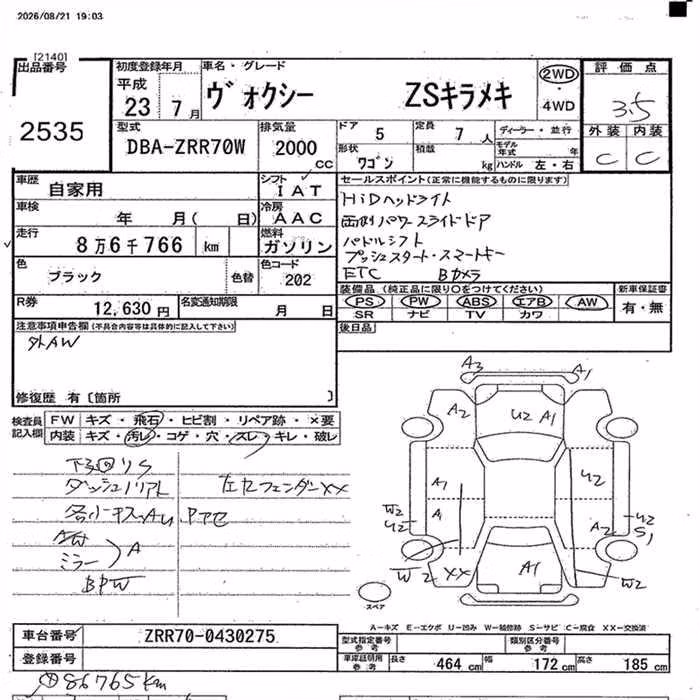 2026/08/21 19:03
[2140]
出品番号
2535
初度登録年月
平成
23 7月
車名・グレード
ヴォクシー ZSキラメキ
2WD
・
4WD
評価点
3.5
外装 内装
C C
型式
DBA-ZRR70W
排気量
2000
cc
ドア 5
定員 7 人
ディーラー・並行
形状 ワゴン
積載 kg
モデル年式 年
ハンドル 左・右
車歴
自家用
シフト
IAT
車検
年 月( 日)
冷房
AAC
走行
8万6千766 km
燃料
ガソリン
色
ブラック
色替
色コード
202
R券
12,630円
名変通知期限
月 日
セールスポイント(正常に機能するものに限ります)
HiDヘッドライト
両側パワースライドドア
パドルシフト
プッシュスタート・スマートキー
ETC Bカメラ
装備品(純正品に限り○をつけてください)
新車保証書
PS PW ABS エアB AW
有・無
SR ナビ TV カワ
後日品
注意事項申告欄(不具合内容等は具体的に記入して下さい)
外AW
修復歴 有〔箇所 〕
検査員
記入欄
FW キズ・飛石・ヒビ割・リペア跡・×要
内装 キズ・汚レ・コゲ・穴・スレ・キレ・破レ
下回りS
ダッシュノリアト
左セフェンダーXX
AW
ミラー
A
BPW
A3 A1
A2 U2 A1
A1 U2
A
W2
U2
A2
U2
S1
W2 XX A1 W2
スペア
A-キズ E-エクボ U-凹み W-補修跡 S-サビ C-腐食 XX-交換済
車台番号
ZRR70-0430275
登録番号
型式指定番号
参考
類別区分番号
参考
車庫証明用
参考
長さ 464 cm 幅 172 cm 高さ 185 cm
86765km